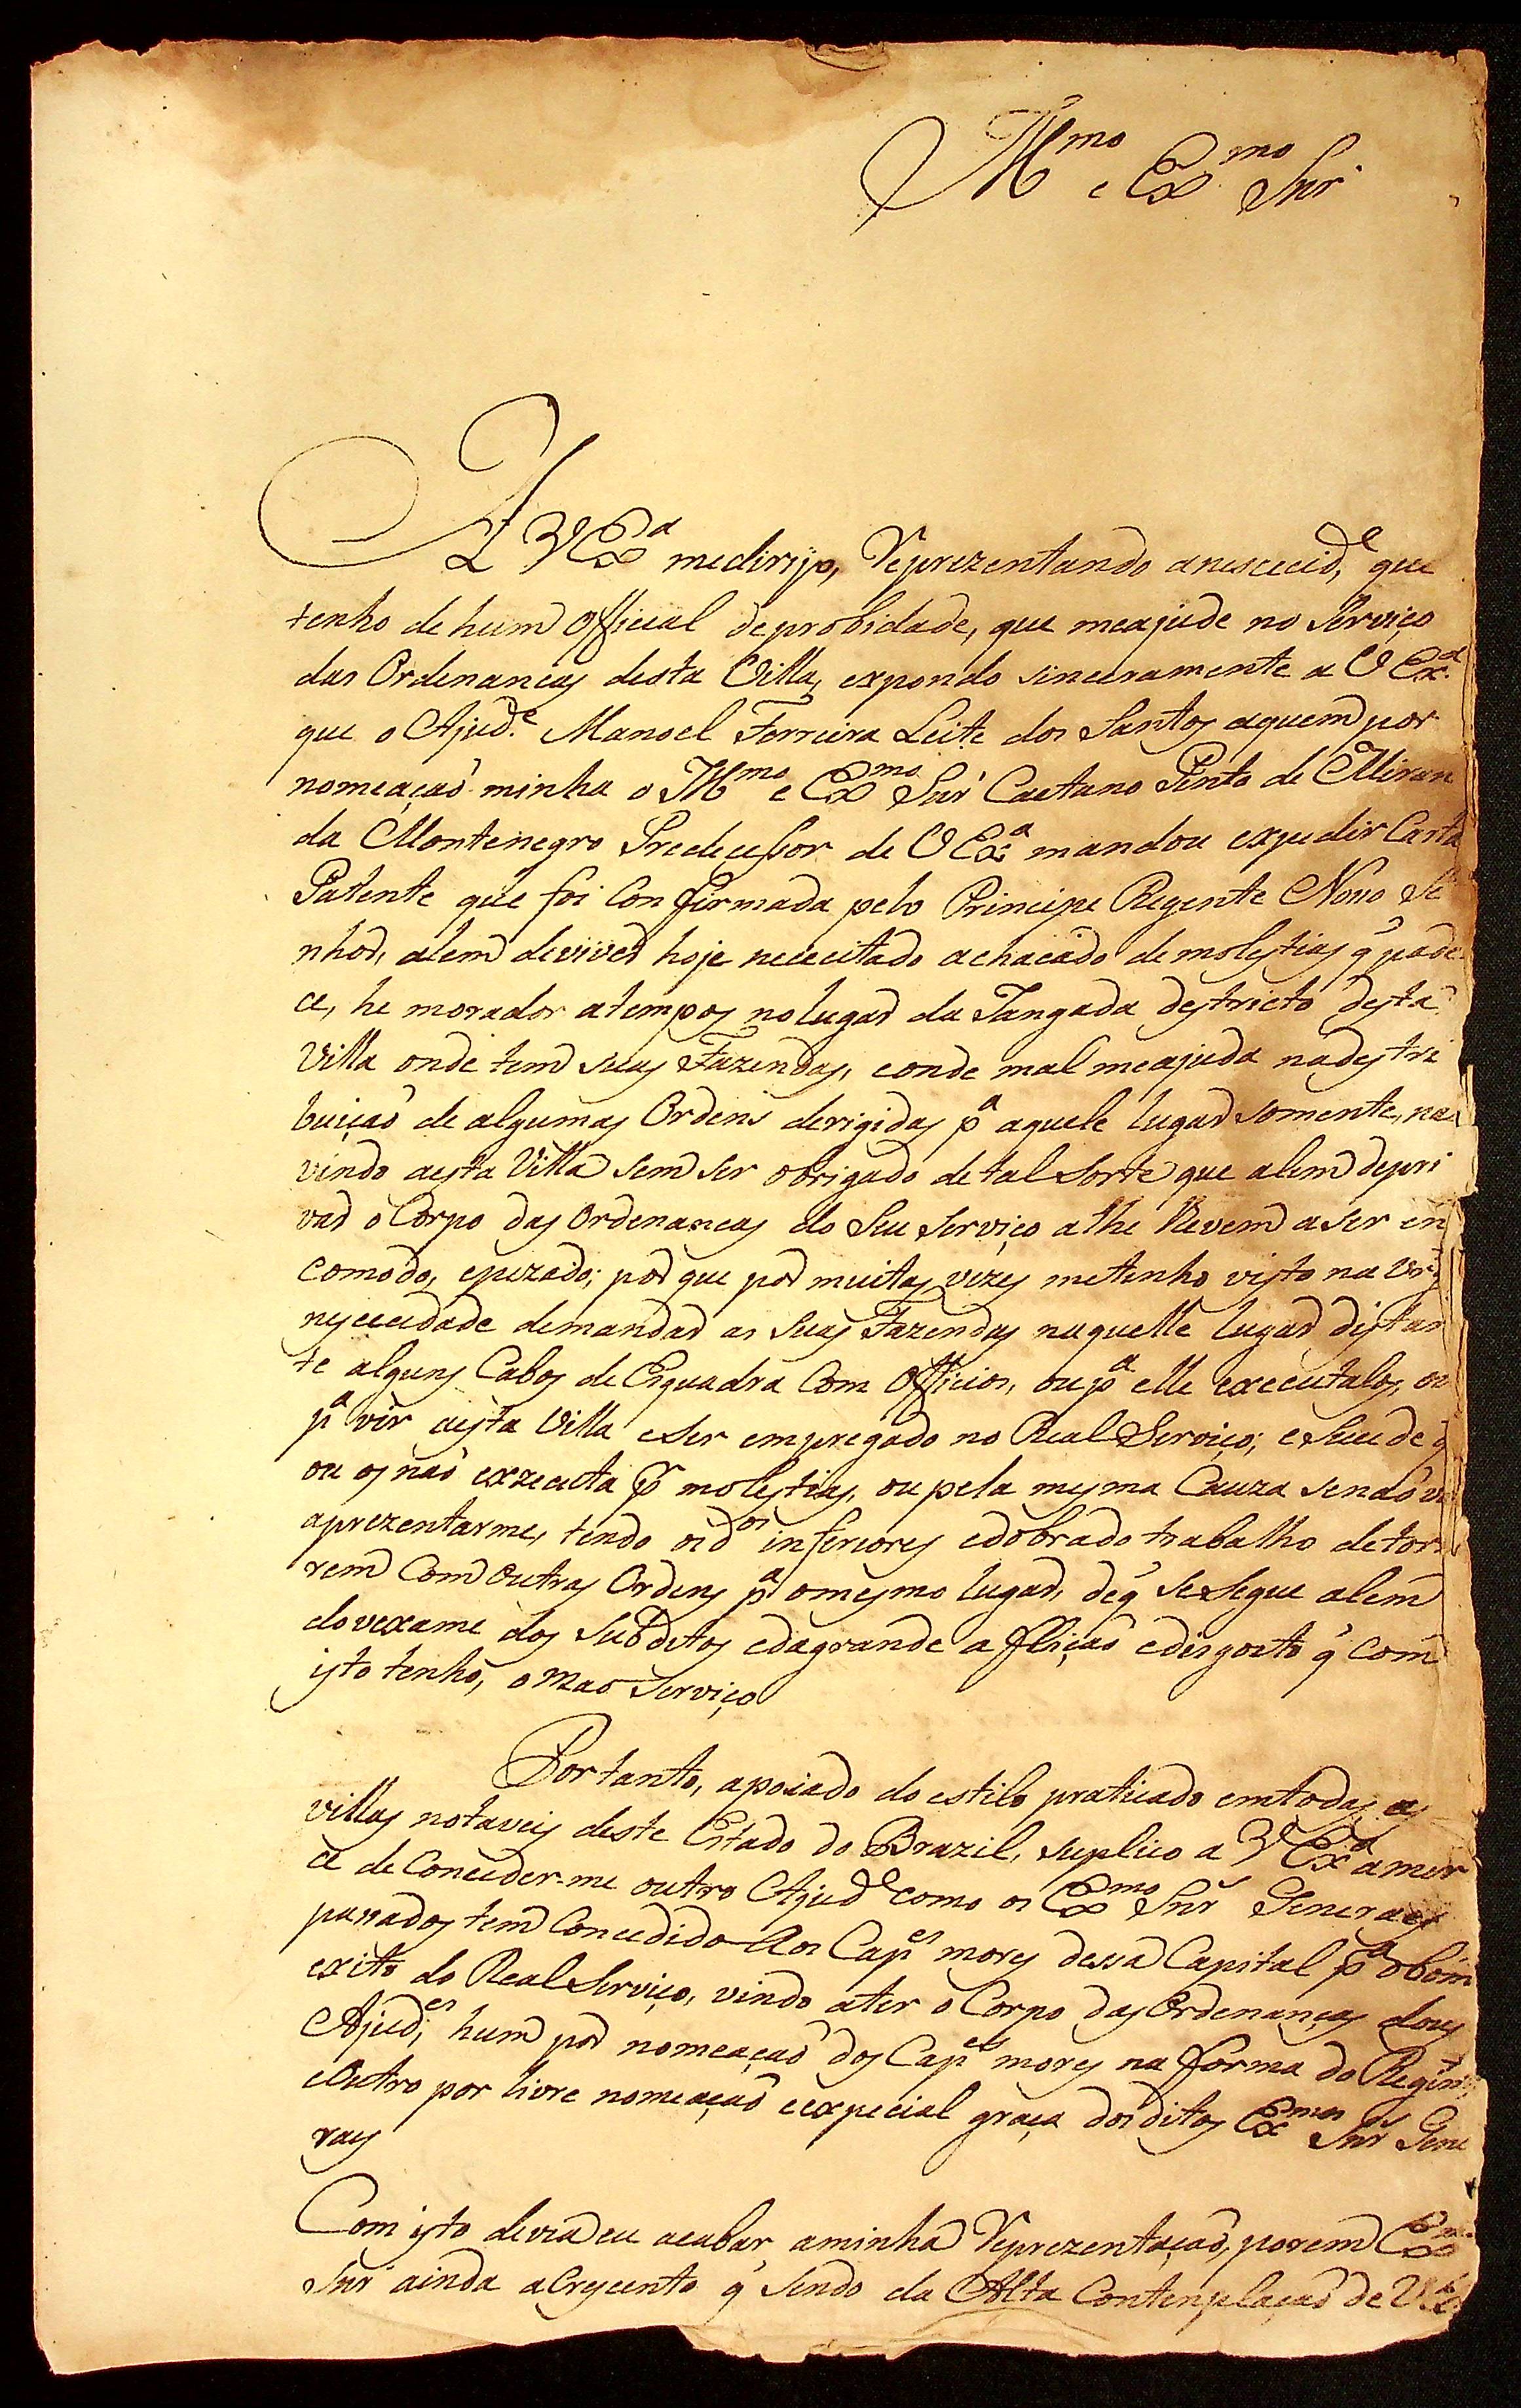 Illmo e Exmo Snr
A VExa medirijo, Reprezentando anescecide, que
tenho de hum Official deprobidade, que meajude no Serviço
das Ordenancas desta Villa, expondo sinceramente a VExa
que o Ajude Manoel Ferreira Leite dos Santos aquem por
nomeaçaõ minha o Illmo e Exmo Snr Caetano Pinto de Miran
da Montenegro Predecessor de VExa mandou expedir Carta
Patente que foi Confirmada pelo Principe Regente Nosso Se
nhor, alem deviver hoje nececitado achacado de molestias q̃ pade
ce, he morador atempos nolugar da Jangada destricto desta
Villa onde tem suas Fazendas, eonde mal meajuda nadestri
buiçaõ de algumas Ordens derigidas pa aquele lugar somente, na
vindo aesta Villa sem ser obrigado de tal Sorte que alem depri
var o Corpo das Ordenancas do Seu Serviço athe vem a ser en
comodo, epezado; por que por muitas vezes metenho visto na Urg
nescecidade demandar as Suas Fazendas naquelle lugar distan
te alguns Cabos de Esquadra Com Officios, ou pa elle executalos, ou
pa vir aesta Villa eser empregado no Real Serviço; e Sucede q̃
ou os naõ exzecuta pr molestias, ou pela mesma Cauza senaõ
aprezentarme, tendo os dos inferiores edobrado trabalho de tor
rem Com Outras Ordens pa omesmo lugar, deq̃ Sesegue alem
dovexame dos Subditos edagrande afliçaõ edisgosto q̃ Com
isto tenho, o mao Serviço
Portanto, apoiado do estilo praticado emtodas as
villas notaveis deste Estado do Brazil, suplico a VExa amer
ce de Conceder-me outro Ajude como os Exmo Snr Generaes
passados tem Concedido Aos Capes mores dessa Capital pa obom
exito do Real Serviço, vindo ater o Corpo das Ordenanças dous
Ajudes, hum por nomeaçaõ dos Capes mores na forma do Regim
eOutro por livre nomeaçaõ eexpecial graça dos ditos Exmos Snr Gene
raes
Com isto devia eu acabar aminha Reprezentaçaõ, porem Exm
Snr ainda aCrescento q̃ Sendo da Alta Contenplaçaõ de VEx